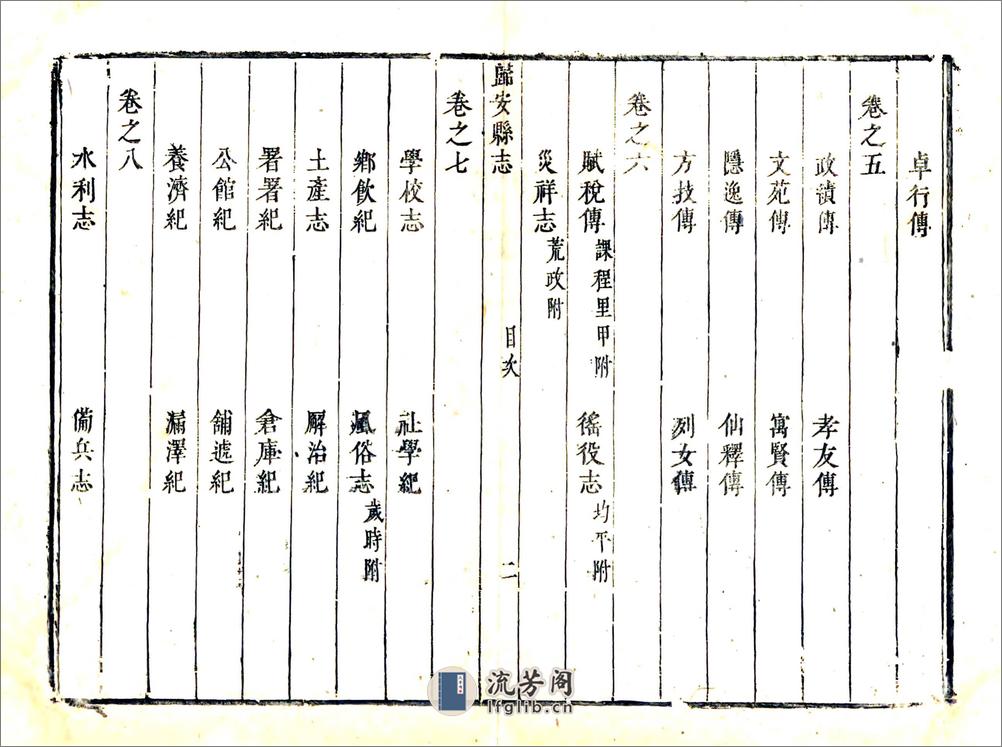 卓行傳
卷之五
政績傳 孝友傳
文苑傳 寓賢傳
隱逸傳 仙釋傳
方技傳 列女傳
卷之六
賦稅傳 課程里甲附 徭役志 均平附
災祥志 荒政附
歸安縣志 目次 二
卷之七
學校志 社學紀
鄉飲紀 風俗志 歲時附
土產志 廨治紀
署署紀 倉庫紀
公館紀 舖遞紀
養濟紀 漏澤紀
卷之八
水利志 備兵志
流芳阁
lfglib.cn